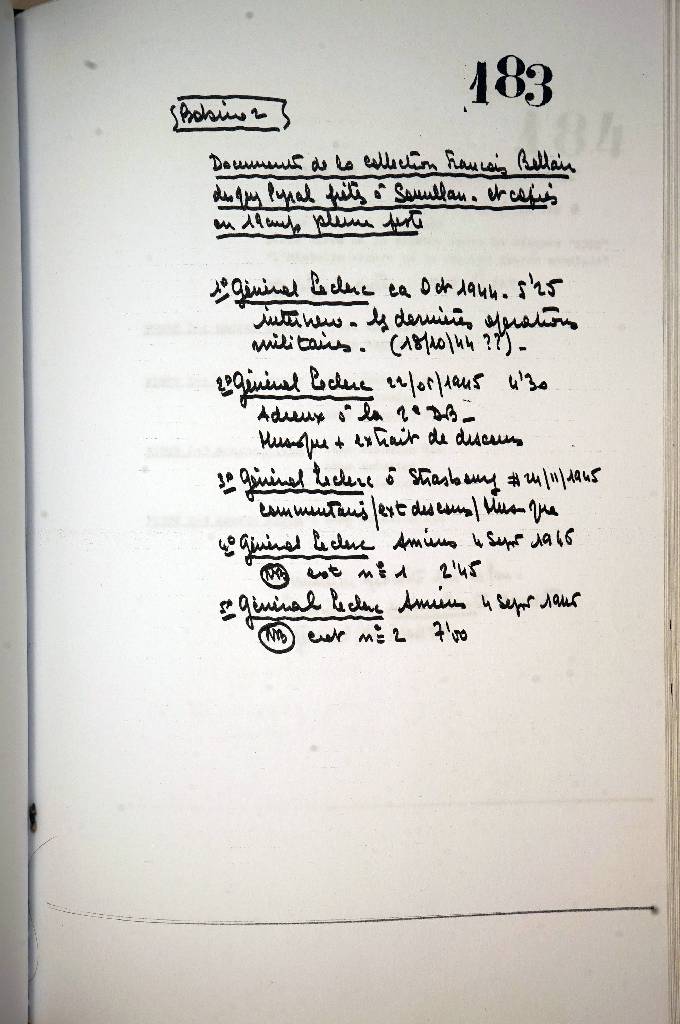 183
Bobine 2
Documents de la collection François Bellair
disques Pyral prêtés à Souillac. et copiés
en 19 cm/s pleine piste
1° Général Leclerc ca Oct 1944. 5'25
interview. les dernières opérations
militaires. (18/10/44 ??).
2° Général Leclerc 22/05/1945 4'30
Adieux à la 2e DB.
Musique + extrait de discours
3° Général Leclerc à Strasbourg # 24/11/1945
commentaires/ext discours/Musique
4° Général Leclerc Amiens 4 Sept 1946
NB ext n° 1 2'45
5° Général Leclerc Amiens 4 Sept 1946
NB ext n° 2 7'00